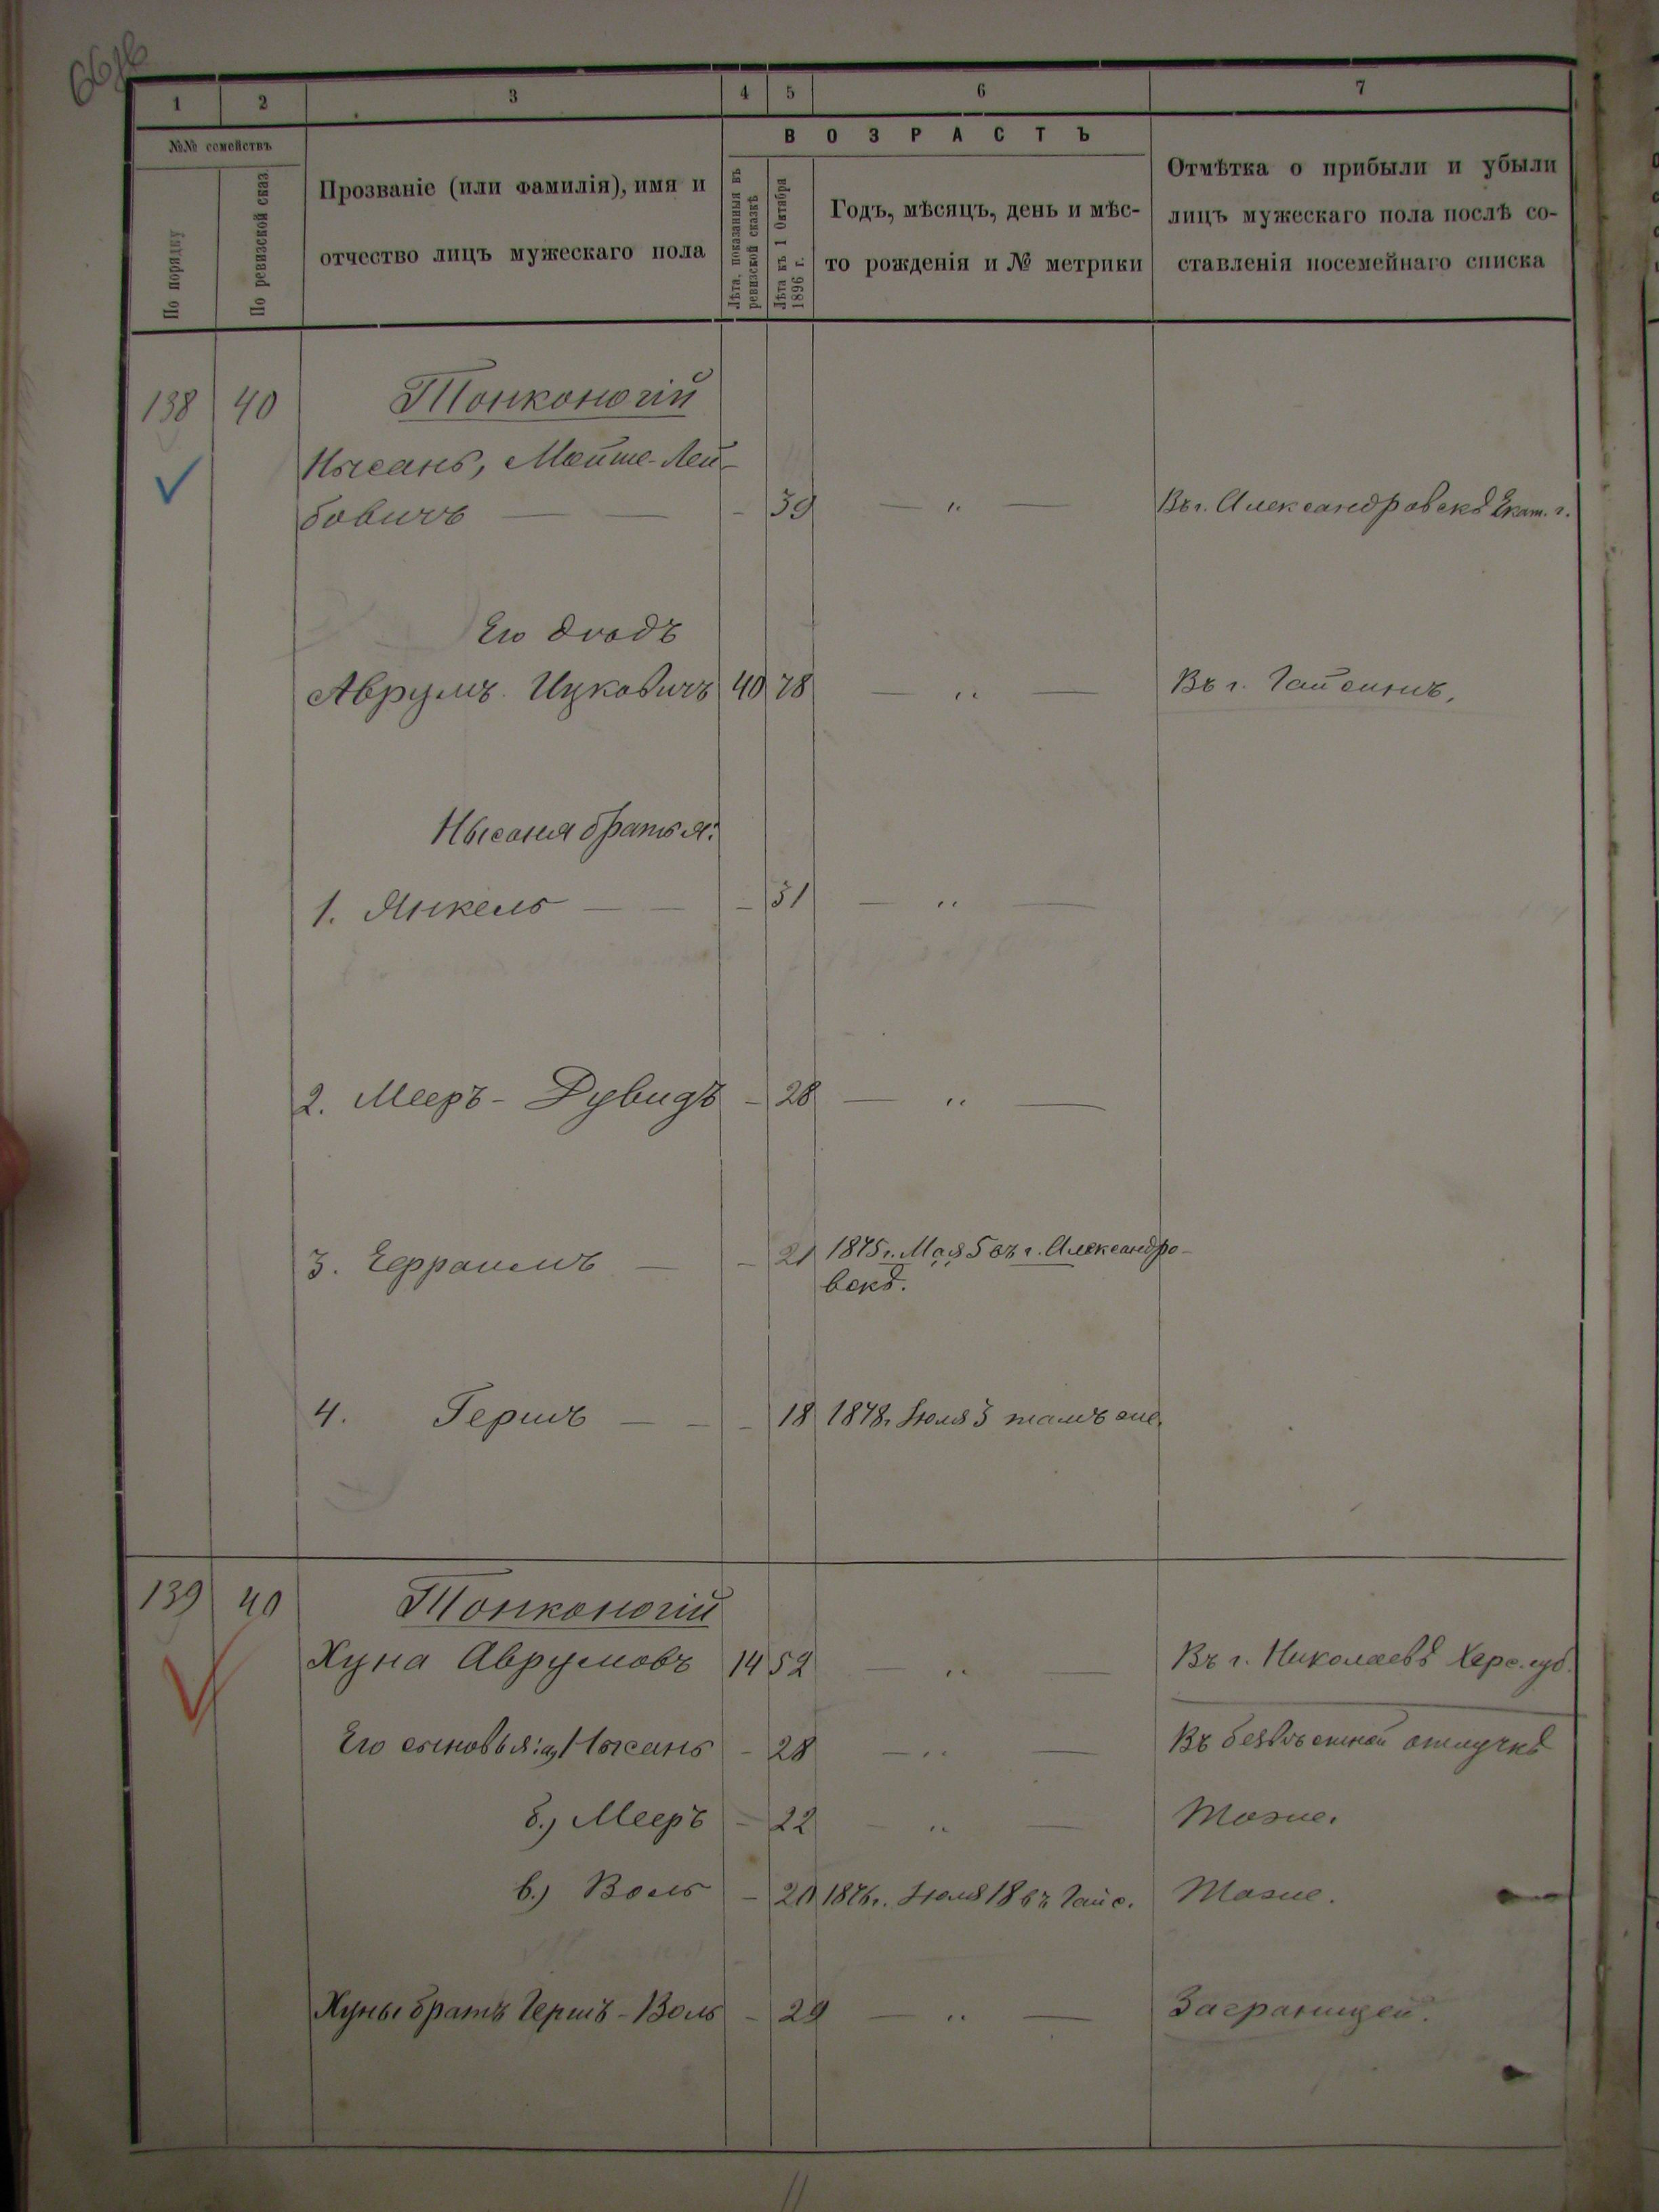 1 2 3 4 5 6 7
№№ семействъ
По порядку
По ревизской сказ.
Прозваніе (или фамилія), имя и
отчество лицъ мужескаго пола
ВОЗРАСТЪ
Лѣта, показанныя въ
ревизской сказкѣ
Лѣта къ 1 Октября
1896 г.
Годъ, мѣсяцъ, день и мѣс-
то рожденія и № метрики
Отмѣтка о прибыли и убыли
лицъ мужескаго пола послѣ со-
ставленія посемейнаго списка
138 40 Тонконогій
Нысань, Мойше-Лей-
бовичъ — — - 39 — " — Въ г. Александровскѣ Екат. г.
Его дѣдъ
Аврумъ Ицковичъ 40 78 — " — Въ г. Гайсинѣ,
Нысаня братья:
1. Янкель — — - 31 — " —
2. Мееръ-Дувидъ - 28 — " —
3. Ефраимъ — - 21 1875 г. Мая 5 въ г. Александро-
вскѣ.
4. Гершъ — — - 18 1878 г. Іюля 3 тамъ же.
139 40 Тонконогій
Хуна Аврумовъ 14 52 — " — Въ г. Николаевѣ Херс. губ.
Его сыновья: а) Нысань - 28 — " — Въ безвѣстной отлучкѣ
б.) Мееръ - 22 - " — Тоже.
в.) Воль - 20 1876 г. Іюля 18 въ Гайс. Тоже.
Хуны братъ Гершъ-Воль - 29 — " — Заграницей.